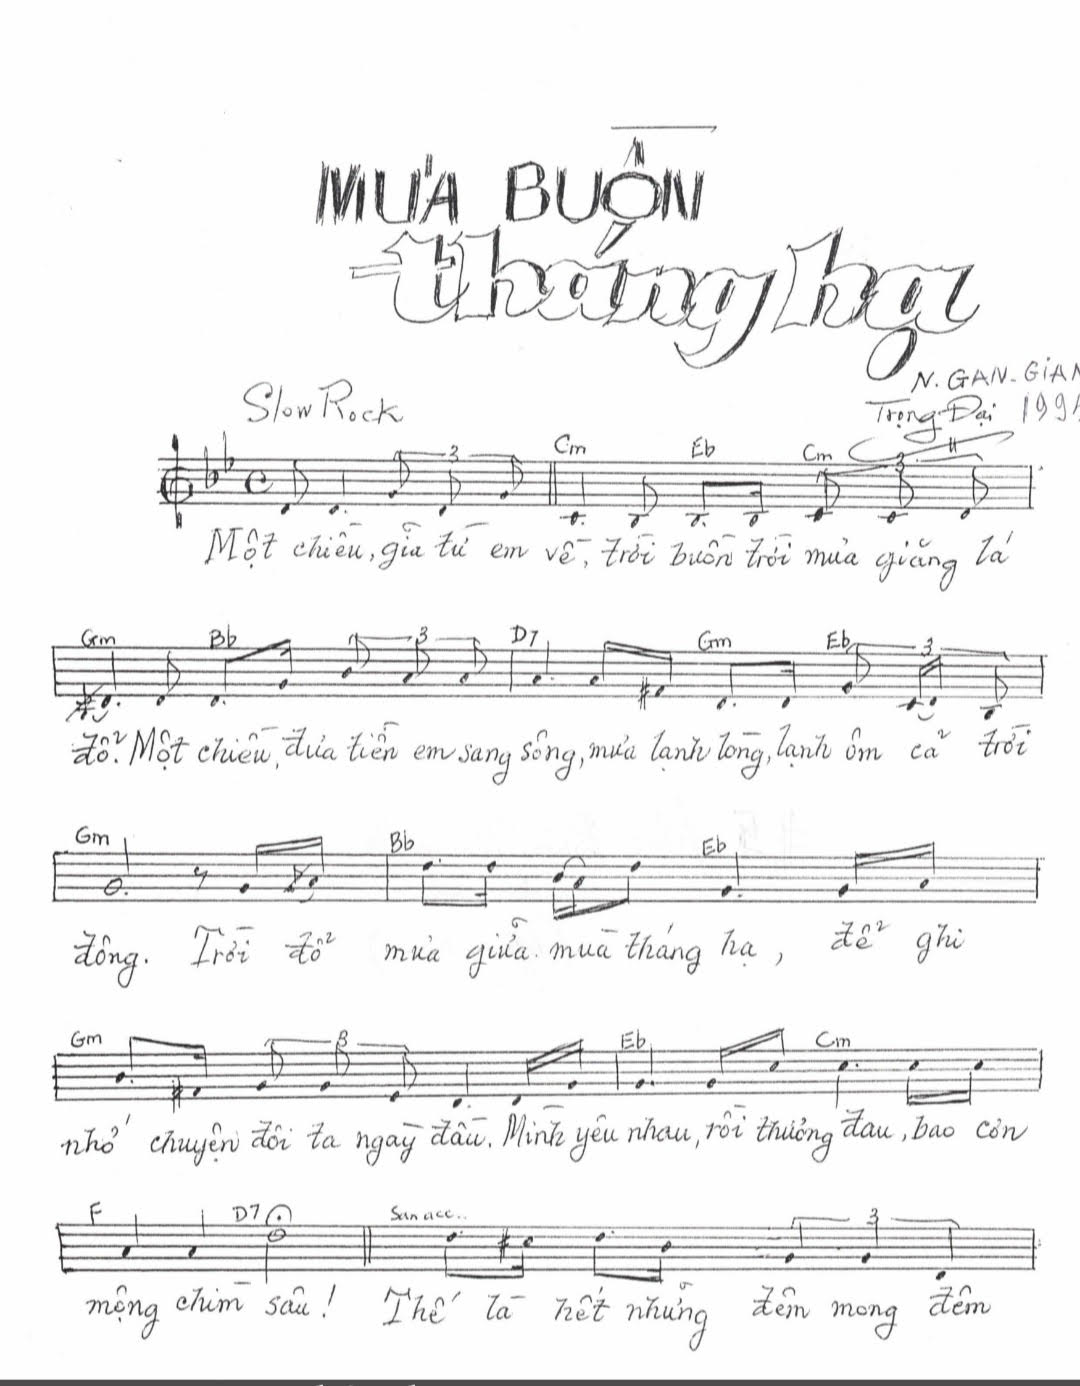 MƯA BUỒN
tháng hạ
N. GAN-GIAN
Slow Rock
Trọng Đại 199
3
Cm Eb Cm 3
Một chiều, giã từ em về, trời buồn trời mưa giăng lá
Gm Bb 3 D7 Gm Eb 3
đổ. Một chiều, đưa tiễn em sang sông, mưa lạnh lòng, lạnh ôm cả trời
Gm Bb Eb
đông. Trời đổ mưa giữa mùa tháng hạ, để ghi
Gm 3 Eb Cm
nhớ chuyện đôi ta ngày đầu. Mình yêu nhau, rồi thương đau, bao cơn
F D7 San acc.. 3
mộng chìm sâu! Thế là hết những đêm mong đêm